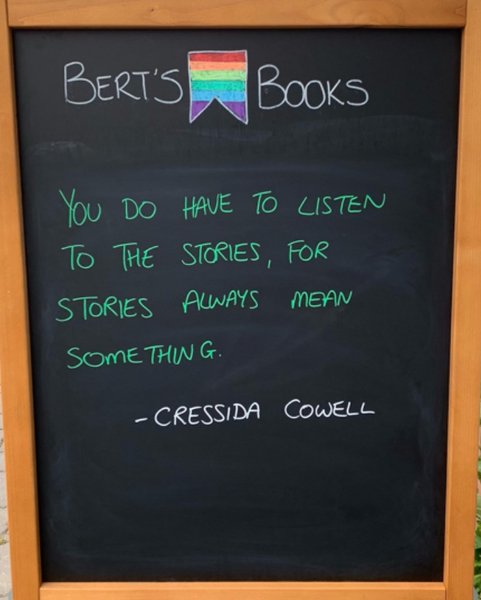 BERT'S BOOKS
YOU DO HAVE TO LISTEN
TO THE STORIES, FOR
STORIES ALWAYS MEAN
SOMETHING.
- CRESSIDA COWELL